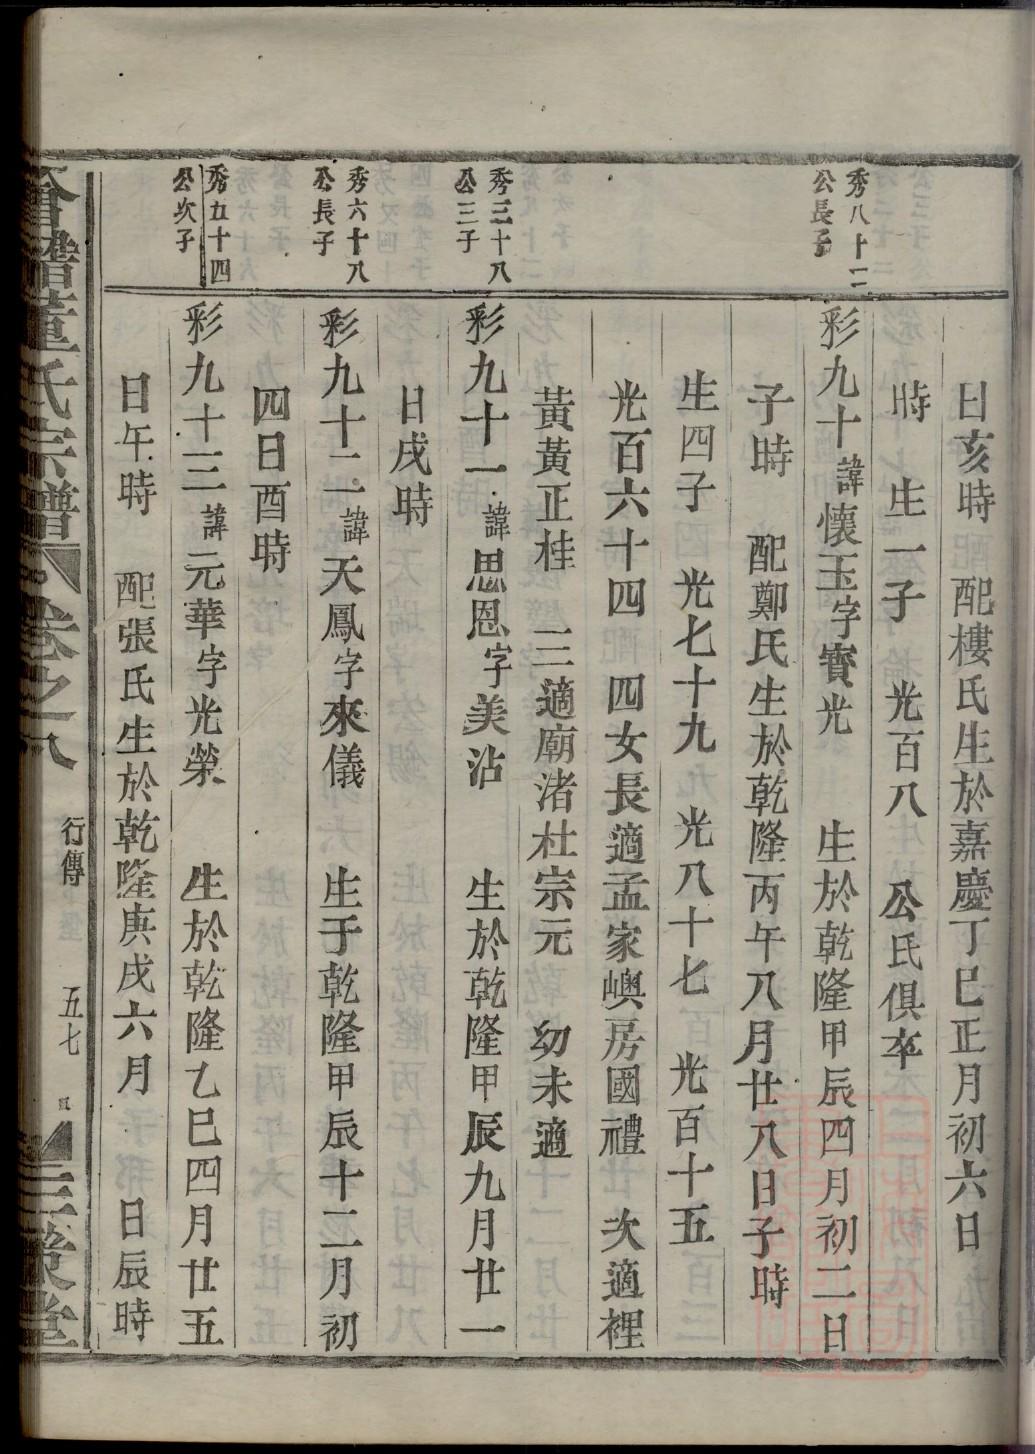 日亥時 配樓氏生於嘉慶丁巳正月初六日
時 生一子 光百八 公氏俱卒
秀八十二
公長子
彩九十諱懷玉字寶光 生於乾隆甲辰四月初二日
子時 配鄭氏生於乾隆丙午八月廿八日子時
生四子 光七十九 光八十七 光百十五
光百六十四 四女長適孟家嶼房國禮 次適裡
黃黃正桂 三適廟渚杜宗元 幼未適
秀三十八
公三子
彩九十一諱思恩字美沾 生於乾隆甲辰九月廿一
日戌時
秀六十八
公長子
彩九十二諱天鳳字來儀 生于乾隆甲辰十二月初
四日酉時
秀五十四
公次子
彩九十三諱元華字光榮 生於乾隆乙巳四月廿五
日午時 配張氏生於乾隆庚戌六月 日辰時
董氏宗譜 卷之八 行傳 五七 三策堂